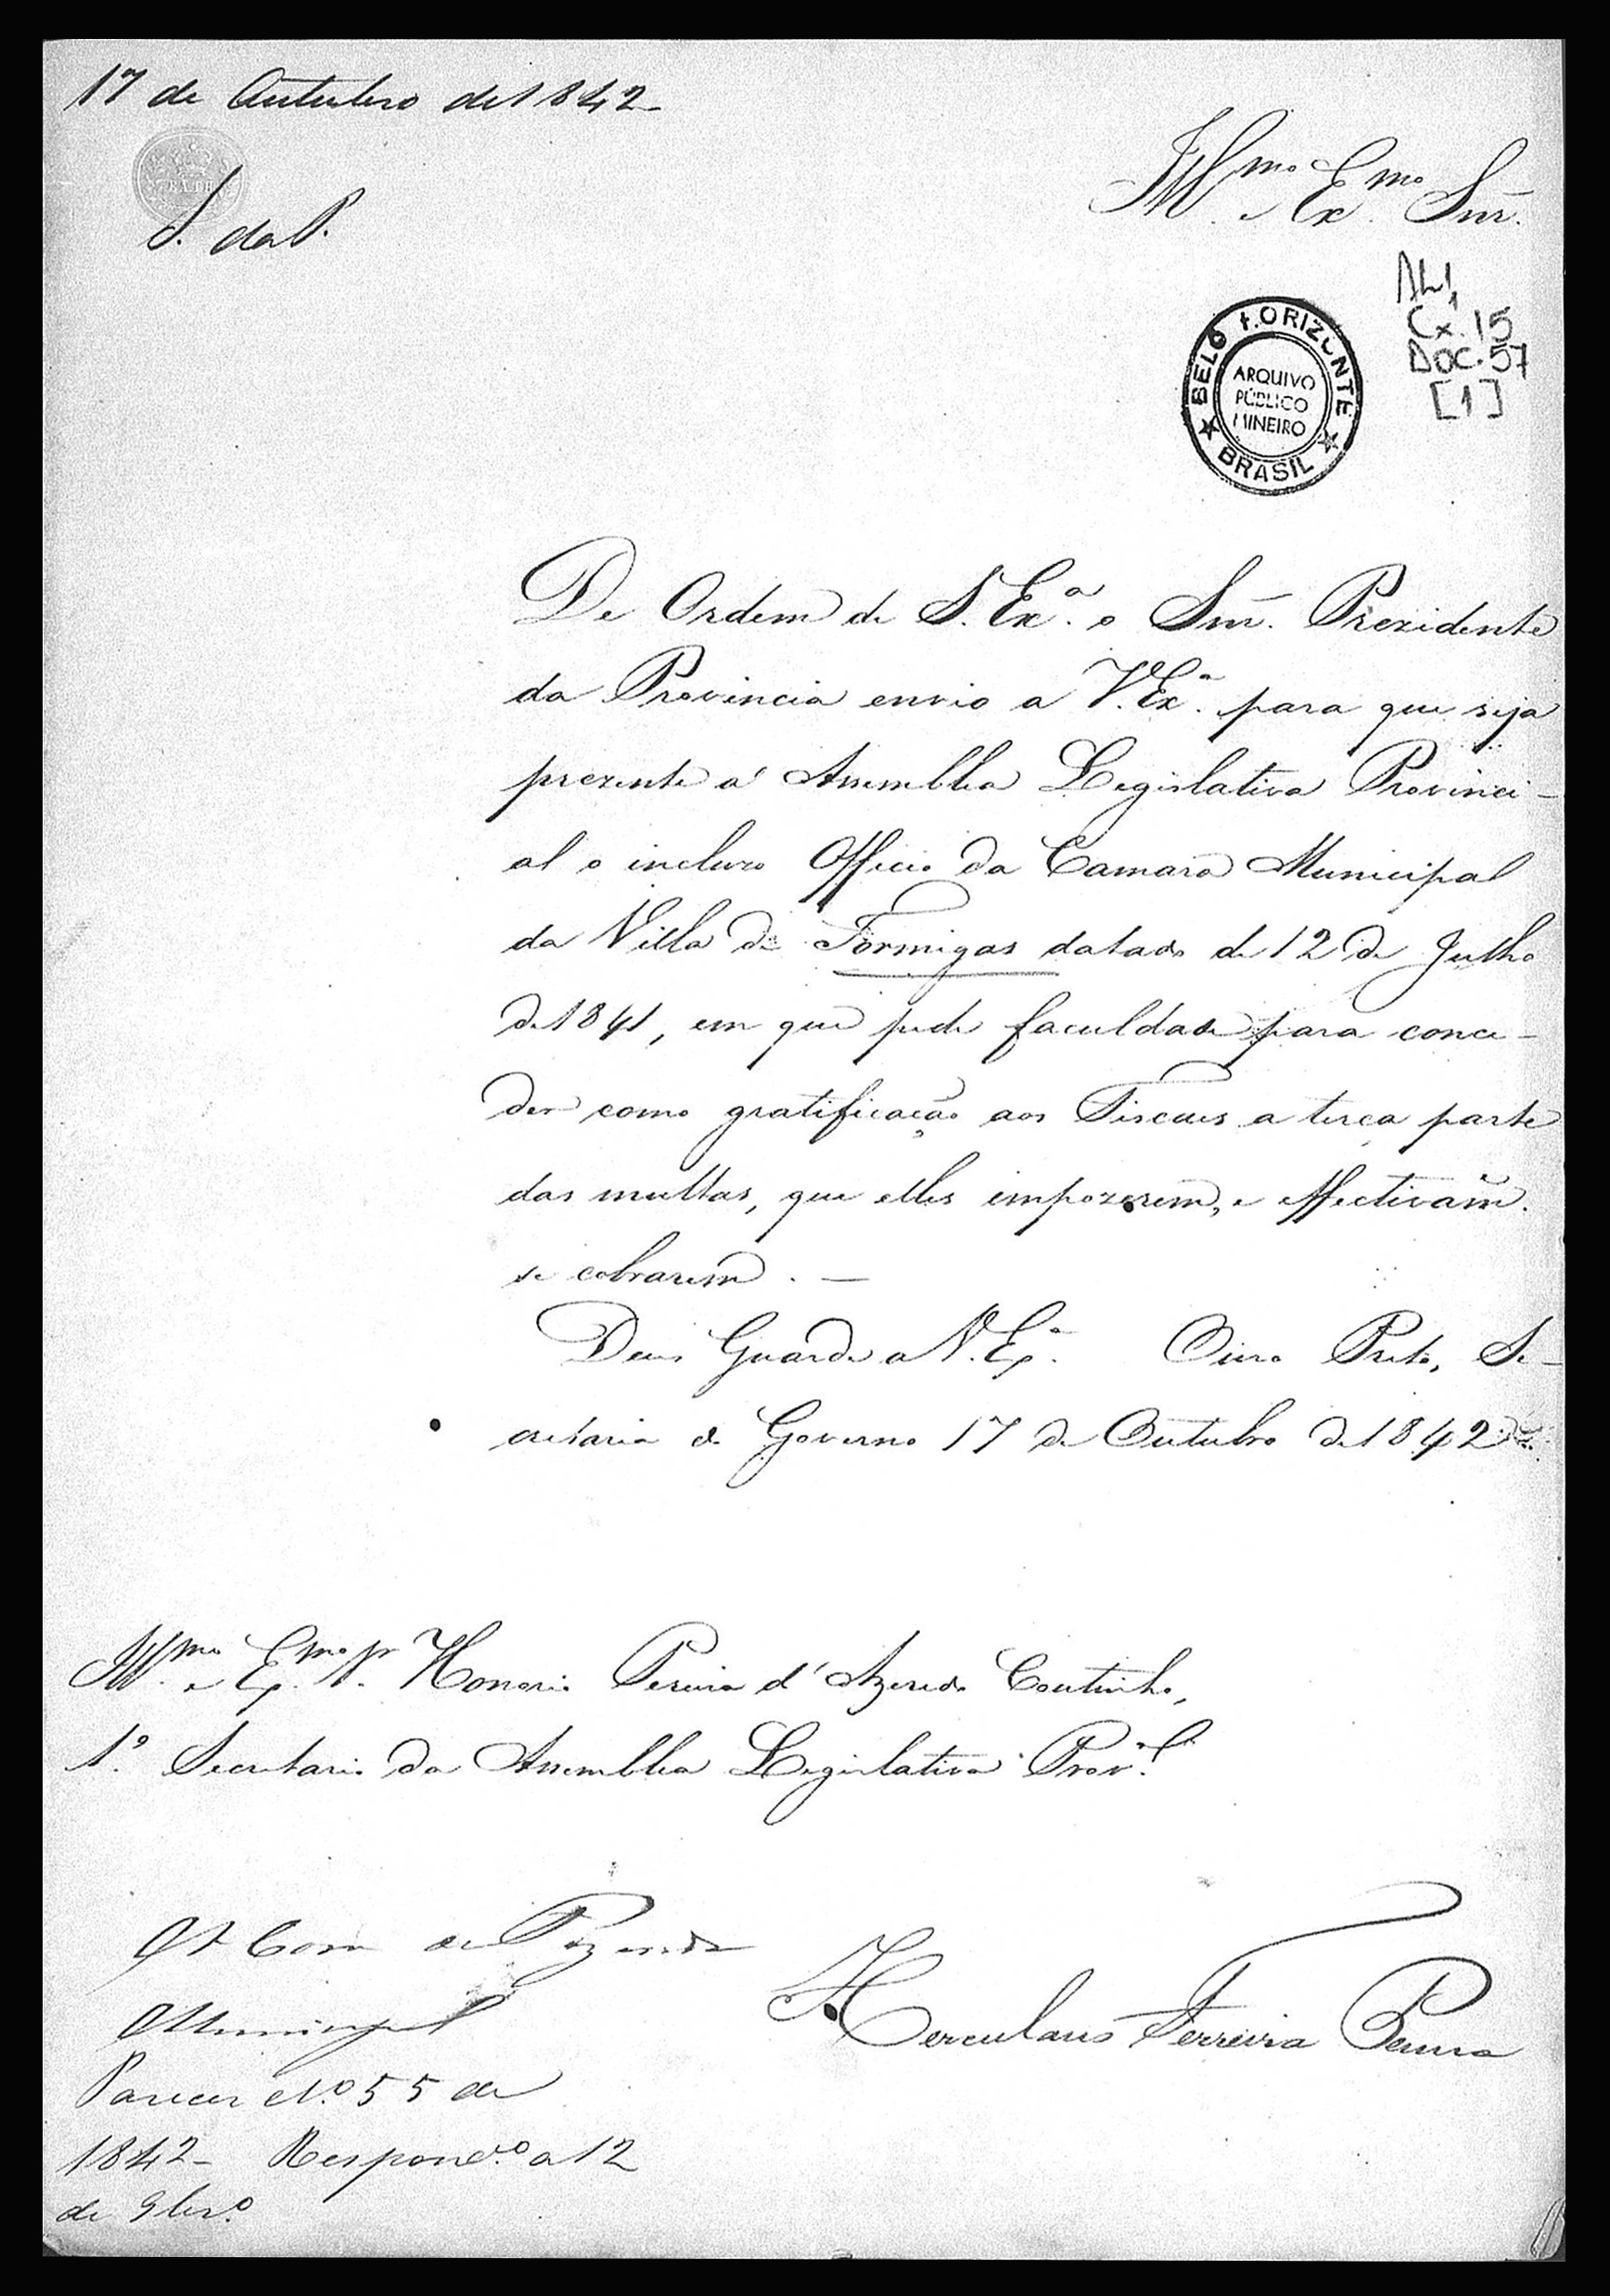 17 de Outubro de 1842
S. da P.
Illmo. e Exmo. Snr.
AL1,
Cx. 15
DOC. 57
[1]
BELO HORIZONTE
ARQUIVO
PÚBLICO
MINEIRO
BRASIL
De Ordem de S. Exa. o Snr. Prezidente
da Provincia envio a V. Exa. para que seja
prezente á Assemblea Legislativa Provinci-
al o incluzo Officio da Camara Municipal
da Villa de Formigas datado de 12 de Julho
de 1841, em que pede faculdade para conce-
der como gratificação aos Fiscaes a terça parte
das multas, que elles impozerem, e effectivam.
se cobrarem. —
Deus Guarde a V. Exa. Ouro Preto, Se-
cretaria do Governo 17 de Outubro de 1842
Illmo. e Exmo. Sr. Honorio Pereira d'Azeredo Coutinho,
1º. Secretario da Assemblea Legislativa Proval.
Á Com de Fazenda
Municipal
Herculano Ferreira Penna
Parecer No. 55 de
1842 - Respondo. a 12
de 9bro.